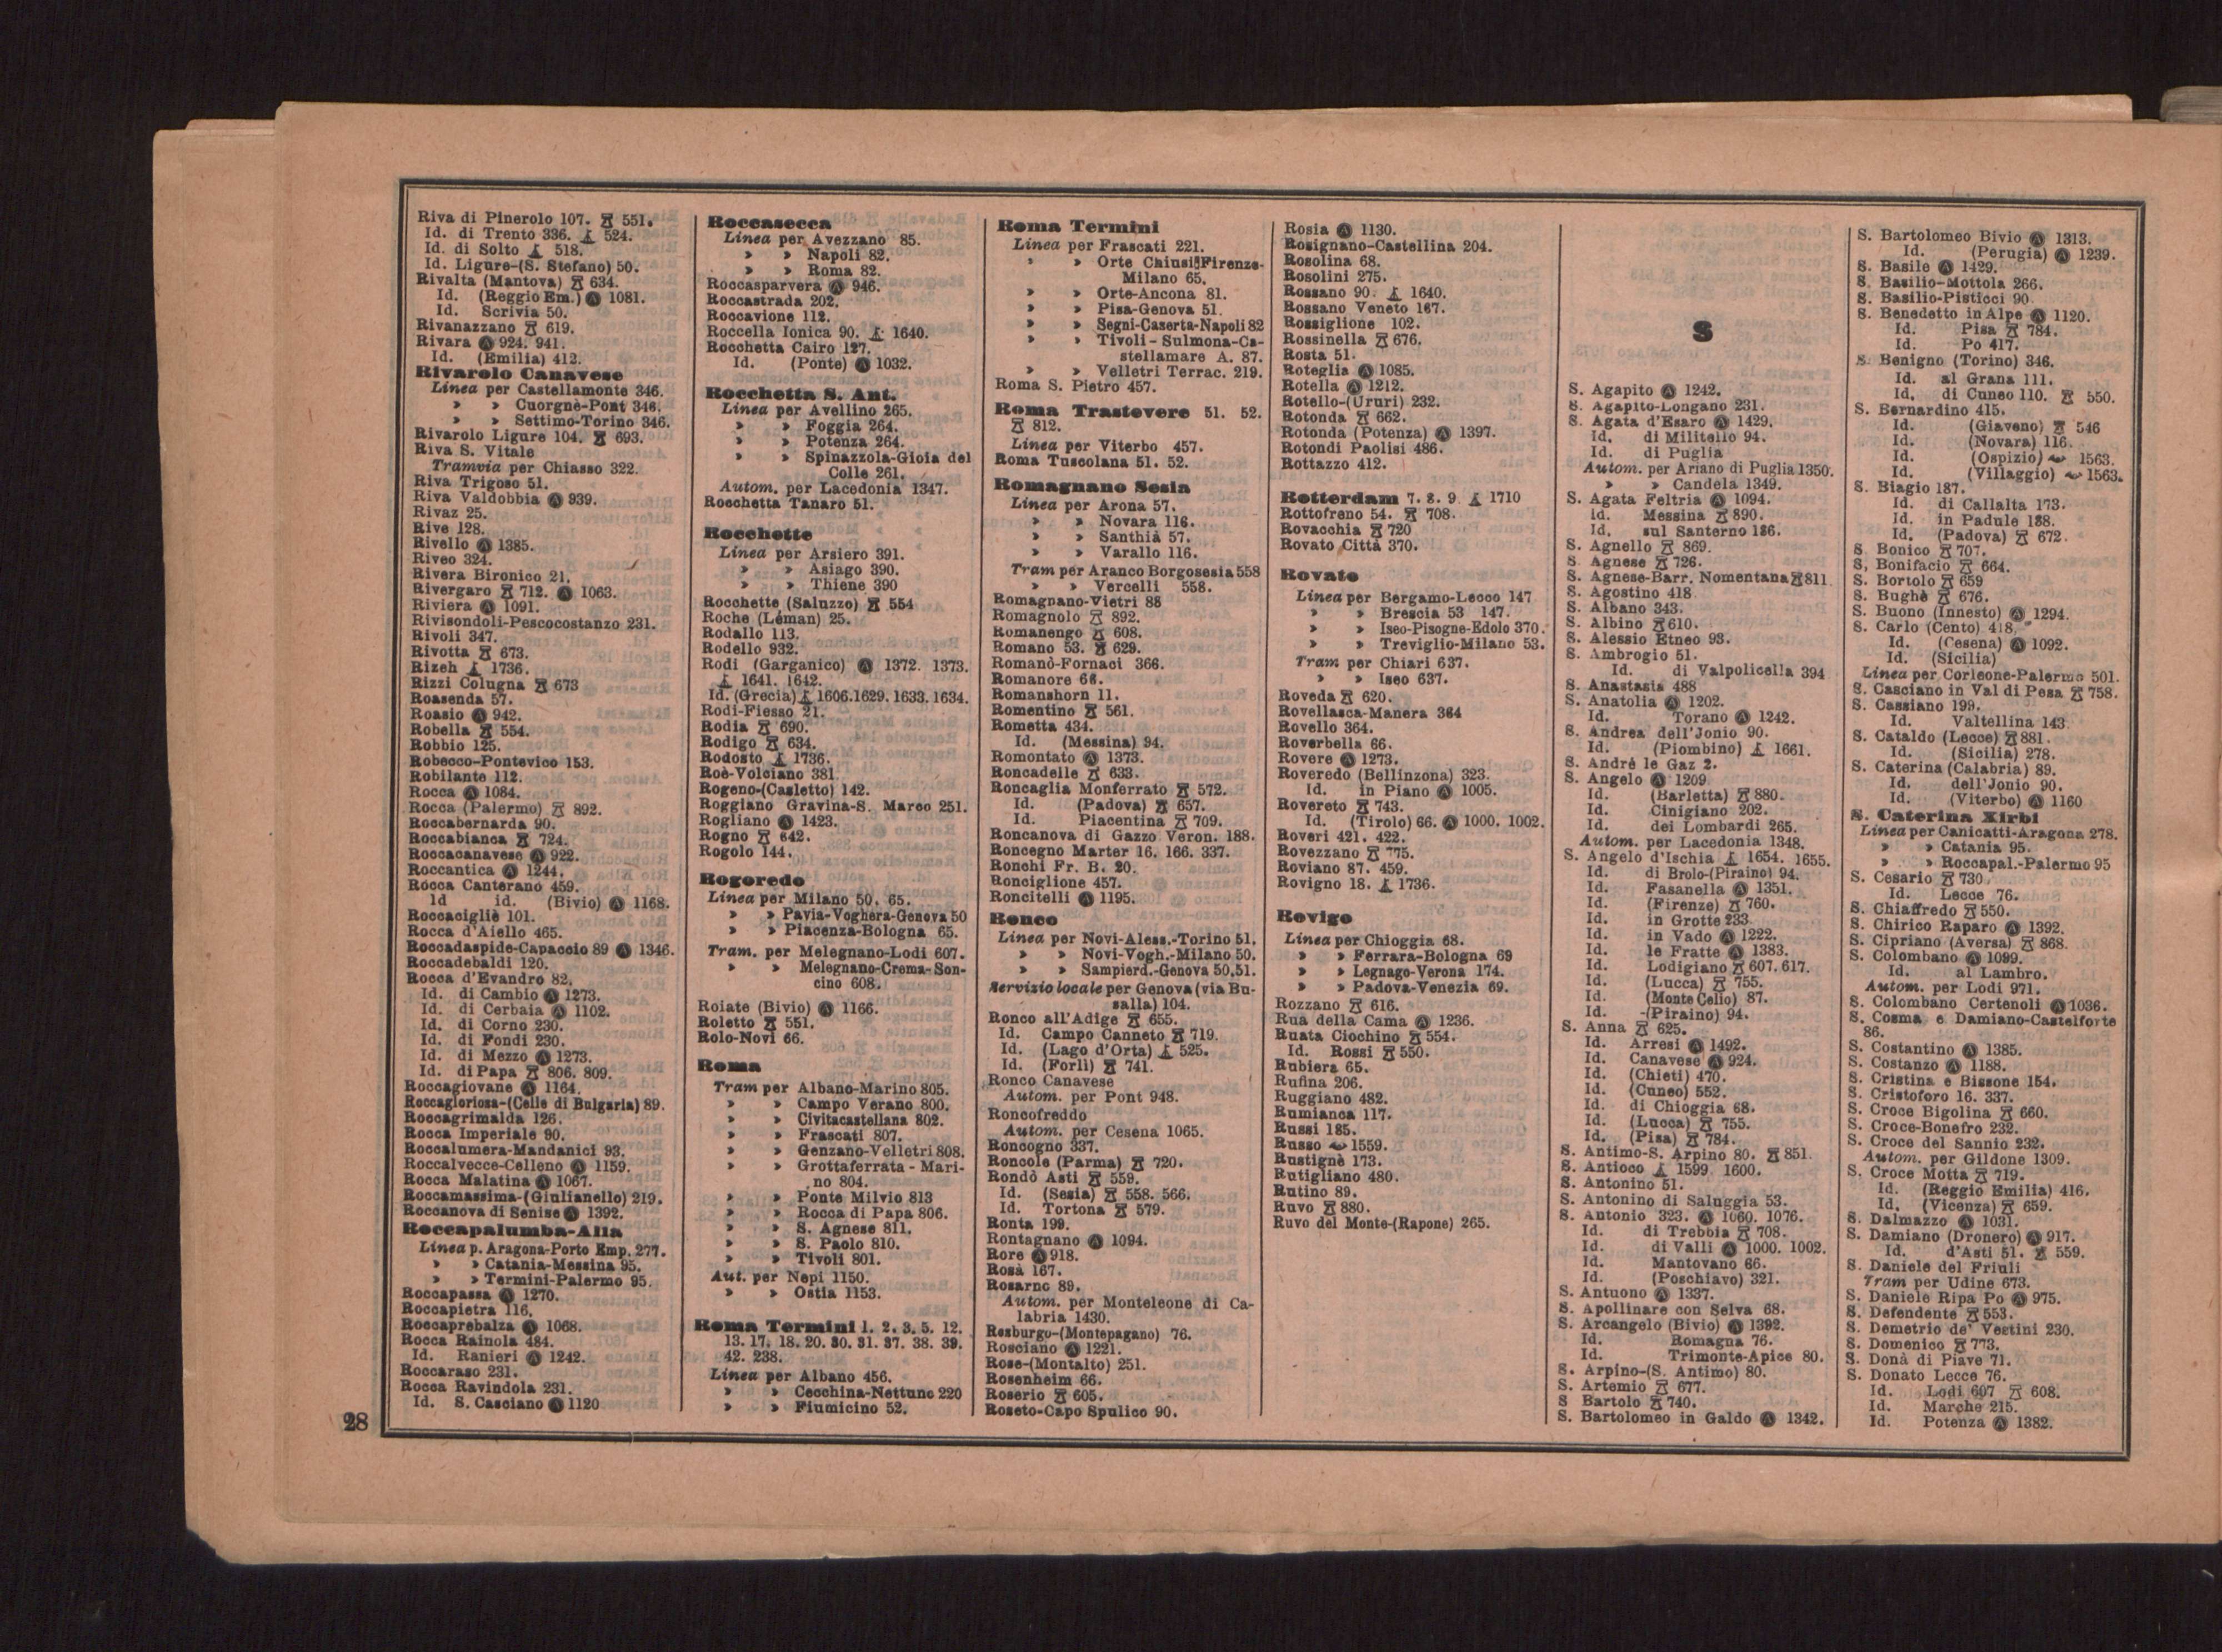 Riva di Pinerolo 107. 551.
Id. di Trento 336. 524.
Id. di Solto 518.
Id. Ligure-(S. Stefano) 50.
Rivalta (Mantova) 634.
Id. (Reggio Em.) Ⓐ 1081.
Id. Scrivia 50.
Rivanazzano 619.
Rivara Ⓐ 924. 941.
Id. (Emilia) 412.
Rivarolo Canavese
Linea per Castellamonte 346.
» » Cuorgnè-Pont 346.
» » Settimo-Torino 346.
Rivarolo Ligure 104. 693.
Riva S. Vitale
Tramvia per Chiasso 322.
Riva Trigoso 51.
Riva Valdobbia Ⓐ 939.
Rivaz 25.
Rive 128.
Rivello Ⓐ 1385.
Riveo 324.
Rivera Bironico 21.
Rivergaro 712. Ⓐ 1063.
Riviera Ⓐ 1091.
Rivisondoli-Pescocostanzo 231.
Rivoli 347.
Rivotta 673.
Rizeh 1736.
Rizzi Colugna 673
Roasenda 57.
Roasio Ⓐ 942.
Robella 554.
Robbio 125.
Robecco-Pontevico 153.
Robilante 112.
Rocca Ⓐ 1084.
Rocca (Palermo) 892.
Roccabernarda 90.
Roccabianca 724.
Roccacanavese Ⓐ 922.
Roccantica Ⓐ 1244.
Rocca Canterano 459.
Id id. (Bivio) Ⓐ 1168.
Roccacigliè 101.
Rocca d'Aiello 465.
Roccadaspide-Capaccio 89 Ⓐ 1346.
Roccadebaldi 120.
Rocca d'Evandro 82.
Id. di Cambio Ⓐ 1273.
Id. di Cerbaia Ⓐ 1102.
Id. di Corno 230.
Id. di Fondi 230.
Id. di Mezzo Ⓐ 1273.
Id. di Papa 806. 809.
Roccagiovane Ⓐ 1164.
Roccagloriosa-(Celle di Bulgaria) 89.
Roccagrimalda 126.
Rocca Imperiale 90.
Roccalumera-Mandanici 93.
Roccalvecce-Celleno Ⓐ 1159.
Rocca Malatina Ⓐ 1067.
Roccamassima-(Giulianello) 219.
Roccanova di Senise Ⓐ 1392.
Roccapalumba-Alia
Linea p. Aragona-Porto Emp. 277.
» » Catania-Messina 95.
» » Termini-Palermo 95.
Roccapassa Ⓐ 1270.
Roccapietra 116.
Roccaprebalza Ⓐ 1068.
Rocca Rainola 484.
Id. Ranieri Ⓐ 1242.
Roccaraso 231.
Rocca Ravindola 231.
Id. S. Casciano Ⓐ 1120
28
Roccasecca
Linea per Avezzano 85.
» » Napoli 82.
» » Roma 82.
Roccasparvera Ⓐ 946.
Roccastrada 202.
Roccavione 112.
Roccella Ionica 90. 1640.
Rocchetta Cairo 127.
Id. (Ponte) Ⓐ 1032.
Rocchetta S. Ant.
Linea per Avellino 265.
» » Foggia 264.
» » Potenza 264.
» » Spinazzola-Gioia del
Colle 261.
Autom. per Lacedonia 1347.
Rocchetta Tanaro 51.
Rocchette
Linea per Arsiero 391.
» » Asiago 390.
» » Thiene 390
Rocchette (Saluzzo) 554
Roche (Léman) 25.
Rodallo 113.
Rodello 932.
Rodi (Garganico) Ⓐ 1372. 1373.
1641. 1642.
Id. (Grecia) 1606.1629.1633.1634.
Rodi-Fiesso 21.
Rodia 690.
Rodigo 634.
Rodosto 1736.
Roè-Volciano 381
Rogeno-(Casletto) 142.
Roggiano Gravina-S. Marco 251.
Rogliano Ⓐ 1423.
Rogno 642.
Rogolo 144.
Rogoredo
Linea per Milano 50. 65.
» » Pavia-Voghera-Genova 50
» » Piacenza-Bologna 65.
Tram. per Melegnano-Lodi 607.
» » Melegnano-Crema-Son-
cino 608.
Roiate (Bivio) Ⓐ 1166.
Roletto 551.
Rolo-Novi 66.
Roma
Tram per Albano-Marino 805.
» » Campo Verano 800.
» » Civitacastellana 802.
» » Frascati 807.
» » Genzano-Velletri 808.
» » Grottaferrata - Mari-
no 804.
» » Ponte Milvio 813
» » Rocca di Papa 806.
» » S. Agnese 811.
» » S. Paolo 810.
» » Tivoli 801.
Aut. per Nepi 1150.
» » Ostia 1153.
Roma Termini 1. 2. 3. 5. 12.
13. 17. 18. 20. 30. 31. 37. 38. 39.
42. 238.
Linea per Albano 456.
» » Cecchina-Nettuno 220
» » Fiumicino 52.
Roma Termini
Linea per Frascati 221.
» » Orte Chiusi-Firenze-
Milano 65.
» » Orte-Ancona 81.
» » Pisa-Genova 51.
» » Segni-Caserta-Napoli 82
» » Tivoli - Sulmona-Ca-
stellamare A. 87.
» » Velletri Terrac. 219.
Roma S. Pietro 457.
Roma Trastevere 51. 52.
812.
Linea per Viterbo 457.
Roma Tuscolana 51. 52.
Romagnano Sesia
Linea per Arona 57.
» » Novara 116.
» » Santhià 57.
» » Varallo 116.
Tram per Aranco Borgosesia 558
» » Vercelli 558.
Romagnano-Vietri 88
Romagnolo 892.
Romanengo 608.
Romano 53. 629.
Romanò-Fornaci 366.
Romanore 66.
Romanshorn 11.
Romentino 561.
Rometta 434.
Id. (Messina) 94.
Romontato Ⓐ 1373.
Roncadelle 633.
Roncaglia Monferrato 572.
Id. (Padova) 657.
Id. Piacentina 709.
Roncanova di Gazzo Veron. 188.
Roncegno Marter 16. 166. 337.
Ronchi Fr. B. 20.
Ronciglione 457.
Roncitelli Ⓐ 1195.
Ronco
Linea per Novi-Aless.-Torino 51.
» » Novi-Vogh.-Milano 50.
» » Sampierd.-Genova 50,51.
Servizio locale per Genova (via Bu-
salla) 104.
Ronco all'Adige 655.
Id. Campo Canneto 719.
Id. (Lago d'Orta) 525.
Id. (Forlì) 741.
Ronco Canavese
Autom. per Pont 948.
Roncofreddo
Autom. per Cesena 1065.
Roncogno 337.
Roncole (Parma) 720.
Rondò Asti 559.
Id. (Sesia) 558. 566.
Id. Tortona 579.
Ronta 199.
Rontagnano Ⓐ 1094.
Rore Ⓐ 918.
Rosà 167.
Rosarno 89.
Autom. per Monteleone di Ca-
labria 1430.
Rosburgo-(Montepagano) 76.
Rosciano Ⓐ 1221.
Rose-(Montalto) 251.
Rosenheim 66.
Roserio 605.
Roseto-Capo Spulico 90.
Rosia Ⓐ 1130.
Rosignano-Castellina 204.
Rosolina 68.
Rosolini 275.
Rossano 90. 1640.
Rossano Veneto 167.
Rossiglione 102.
Rossinella 676.
Rosta 51.
Roteglia Ⓐ 1085.
Rotella Ⓐ 1212.
Rotello-(Ururi) 232.
Rotonda 662.
Rotonda (Potenza) Ⓐ 1397.
Rotondi Paolisi 486.
Rottazzo 412.
Rotterdam 7. 8. 9 1710
Rottofreno 54. 708.
Rovacchia 720
Rovato Città 370.
Rovato
Linea per Bergamo-Lecco 147
» » Brescia 53 147.
» » Iseo-Pisogne-Edolo 370.
» » Treviglio-Milano 53.
Tram per Chiari 637.
» » Iseo 637.
Roveda 620.
Rovellasca-Manera 364
Rovello 364.
Roverbella 66.
Rovere Ⓐ 1273.
Roveredo (Bellinzona) 323.
Id. in Piano Ⓐ 1005.
Rovereto 743.
Id. (Tirolo) 66. Ⓐ 1000. 1002.
Roveri 421. 422.
Rovezzano 775.
Roviano 87. 459.
Rovigno 18. 1736.
Rovigo
Linea per Chioggia 68.
» » Ferrara-Bologna 69
» » Legnago-Verona 174.
» » Padova-Venezia 69.
Rozzano 616.
Rua della Cama Ⓐ 1236.
Ruata Ciochino 554.
Id. Rossi 550.
Rubiera 65.
Rufina 206.
Ruggiano 482.
Rumianca 117.
Russi 185.
Russo 1559.
Rustignè 173.
Rutigliano 480.
Rutino 89.
Ruvo 880.
Ruvo del Monte-(Rapone) 265.
S
S. Agapito Ⓐ 1242.
S. Agapito-Longano 231.
S. Agata d'Esaro Ⓐ 1429.
Id. di Militello 94.
Id. di Puglia
Autom. per Ariano di Puglia 1350.
» » Candela 1349.
S. Agata Feltria Ⓐ 1094.
id. Messina 890.
Id. sul Santerno 186.
S. Agnello 869.
S Agnese 726.
S. Agnese-Barr. Nomentana 811
S. Agostino 418
S. Albano 343.
S. Albino 610.
S. Alessio Etneo 93.
S. Ambrogio 51.
Id. di Valpolicella 394
S. Anastasia 488
S. Anatolia Ⓐ 1202.
Id. Torano Ⓐ 1242.
S. Andrea dell'Jonio 90.
Id. (Piombino) 1661.
S. André le Gaz 2.
S. Angelo Ⓐ 1209
Id. (Barletta) 880.
Id. Cinigiano 202.
Id. dei Lombardi 265.
Autom. per Lacedonia 1348.
S. Angelo d'Ischia 1654. 1655.
Id. di Brolo-(Piraino) 94.
Id. Fasanella Ⓐ 1351.
Id. (Firenze) 760.
Id. in Grotte 233
Id. in Vado Ⓐ 1222.
Id. le Fratte Ⓐ 1383.
Id. Lodigiano 607. 617.
Id. (Lucca) 755.
Id. (Monte Celio) 87.
Id. -(Piraino) 94.
S. Anna 625.
Id. Arresi Ⓐ 1492.
Id. Canavese Ⓐ 924.
Id. (Chieti) 470.
Id. (Cuneo) 552.
Id. di Chioggia 68.
Id. (Lucca) 755.
Id. (Pisa) 784.
S. Antimo-S. Arpino 80. 851
S. Antioco 1599 1600.
S. Antonino 51.
S. Antonino di Saluggia 53.
S. Antonio 323. Ⓐ 1060. 1076.
Id. di Trebbia 708.
Id. di Valli Ⓐ 1000. 1002.
Id. Mantovano 66.
Id. (Poschiavo) 321.
S. Antuono Ⓐ 1337.
S. Apollinare con Selva 68.
S. Arcangelo (Bivio) Ⓐ 1392.
Id. Romagna 76.
Id. Trimonte-Apice 80.
S. Arpino-(S. Antimo) 80.
S. Artemio 677.
S Bartolo 740.
S. Bartolomeo in Galdo Ⓐ 1342.
S. Bartolomeo Bivio Ⓐ 1313.
Id. (Perugia) Ⓐ 1239.
S. Basile Ⓐ 1429.
S. Basilio-Mottola 266.
S. Basilio-Pisticci 90
S. Benedetto in Alpe Ⓐ 1120.
Id. Pisa 784.
Id. Po 417.
S. Benigno (Torino) 346.
Id. al Grana 111.
Id. di Cuneo 110. 550.
S. Bernardino 415.
Id. (Giaveno) 546
Id. (Novara) 116.
Id. (Ospizio) 1563.
Id. (Villaggio) 1563.
S. Biagio 187.
Id. di Callalta 173.
Id. in Padule 188.
Id. (Padova) 672.
S. Bonico 707.
S, Bonifacio 664.
S. Bortolo 659
S. Bughè 676.
S. Buono (Innesto) Ⓐ 1294.
S. Carlo (Cento) 418.
Id. (Cesena) Ⓐ 1092.
Id. (Sicilia)
Linea per Corleone-Palermo 501.
S. Casciano in Val di Pesa 758.
S. Cassiano 199.
Id. Valtellina 143
S. Cataldo (Lecce) 881.
Id. (Sicilia) 278.
S. Caterina (Calabria) 89.
Id. dell'Jonio 90.
Id. (Viterbo) Ⓐ 1160
S. Caterina Xirbi
Linea per Canicatti-Aragona 278.
» » Catania 95.
» » Roccapal.-Palermo 95
S. Cesario 730
Id. Lecce 76.
S. Chiaffredo 550.
S. Chirico Raparo Ⓐ 1392.
S. Cipriano (Aversa) 868.
S. Colombano Ⓐ 1099.
Id. al Lambro.
Autom. per Lodi 971.
S. Colombano Certenoli Ⓐ 1036.
S. Cosma e Damiano-Castelforte
86.
S. Costantino Ⓐ 1385.
S. Costanzo Ⓐ 1188.
S. Cristina e Bissone 154.
S. Cristoforo 16. 337.
S. Croce Bigolina 660.
S. Croce-Bonefro 232.
S. Croce del Sannio 232.
Autom. per Gildone 1309.
S. Croce Motta 719.
Id. (Reggio Emilia) 416.
Id. (Vicenza) 659.
S. Dalmazzo Ⓐ 1031.
S. Damiano (Dronero) Ⓐ 917.
Id. d'Asti 51. 559.
S. Daniele del Friuli
Tram per Udine 673.
S. Daniele Ripa Po Ⓐ 975.
S. Defendente 553.
S. Demetrio de' Vestini 230.
S. Domenico 773.
S. Donà di Piave 71.
S. Donato Lecce 76.
Id. Lodi 607 608.
Id. Marche 215.
Id. Potenza Ⓐ 1382.